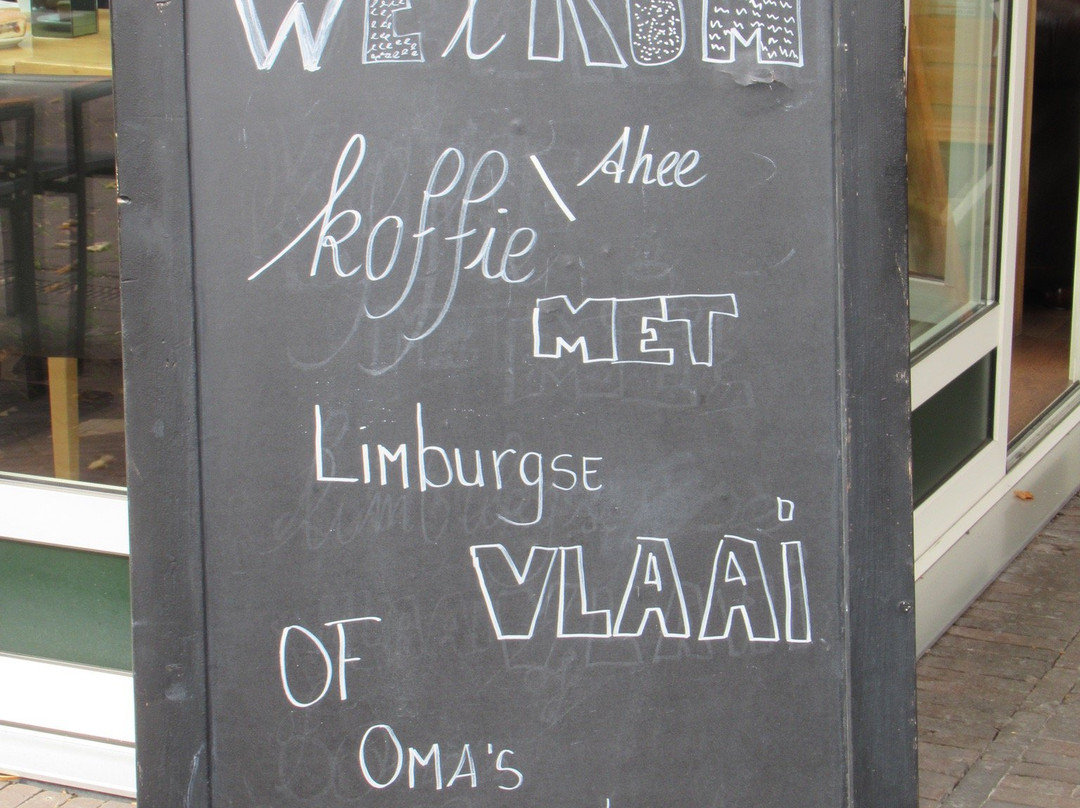 WElKOM
koffie \ thee
MET
Limburgse
VLAAi
OF
OMA'S